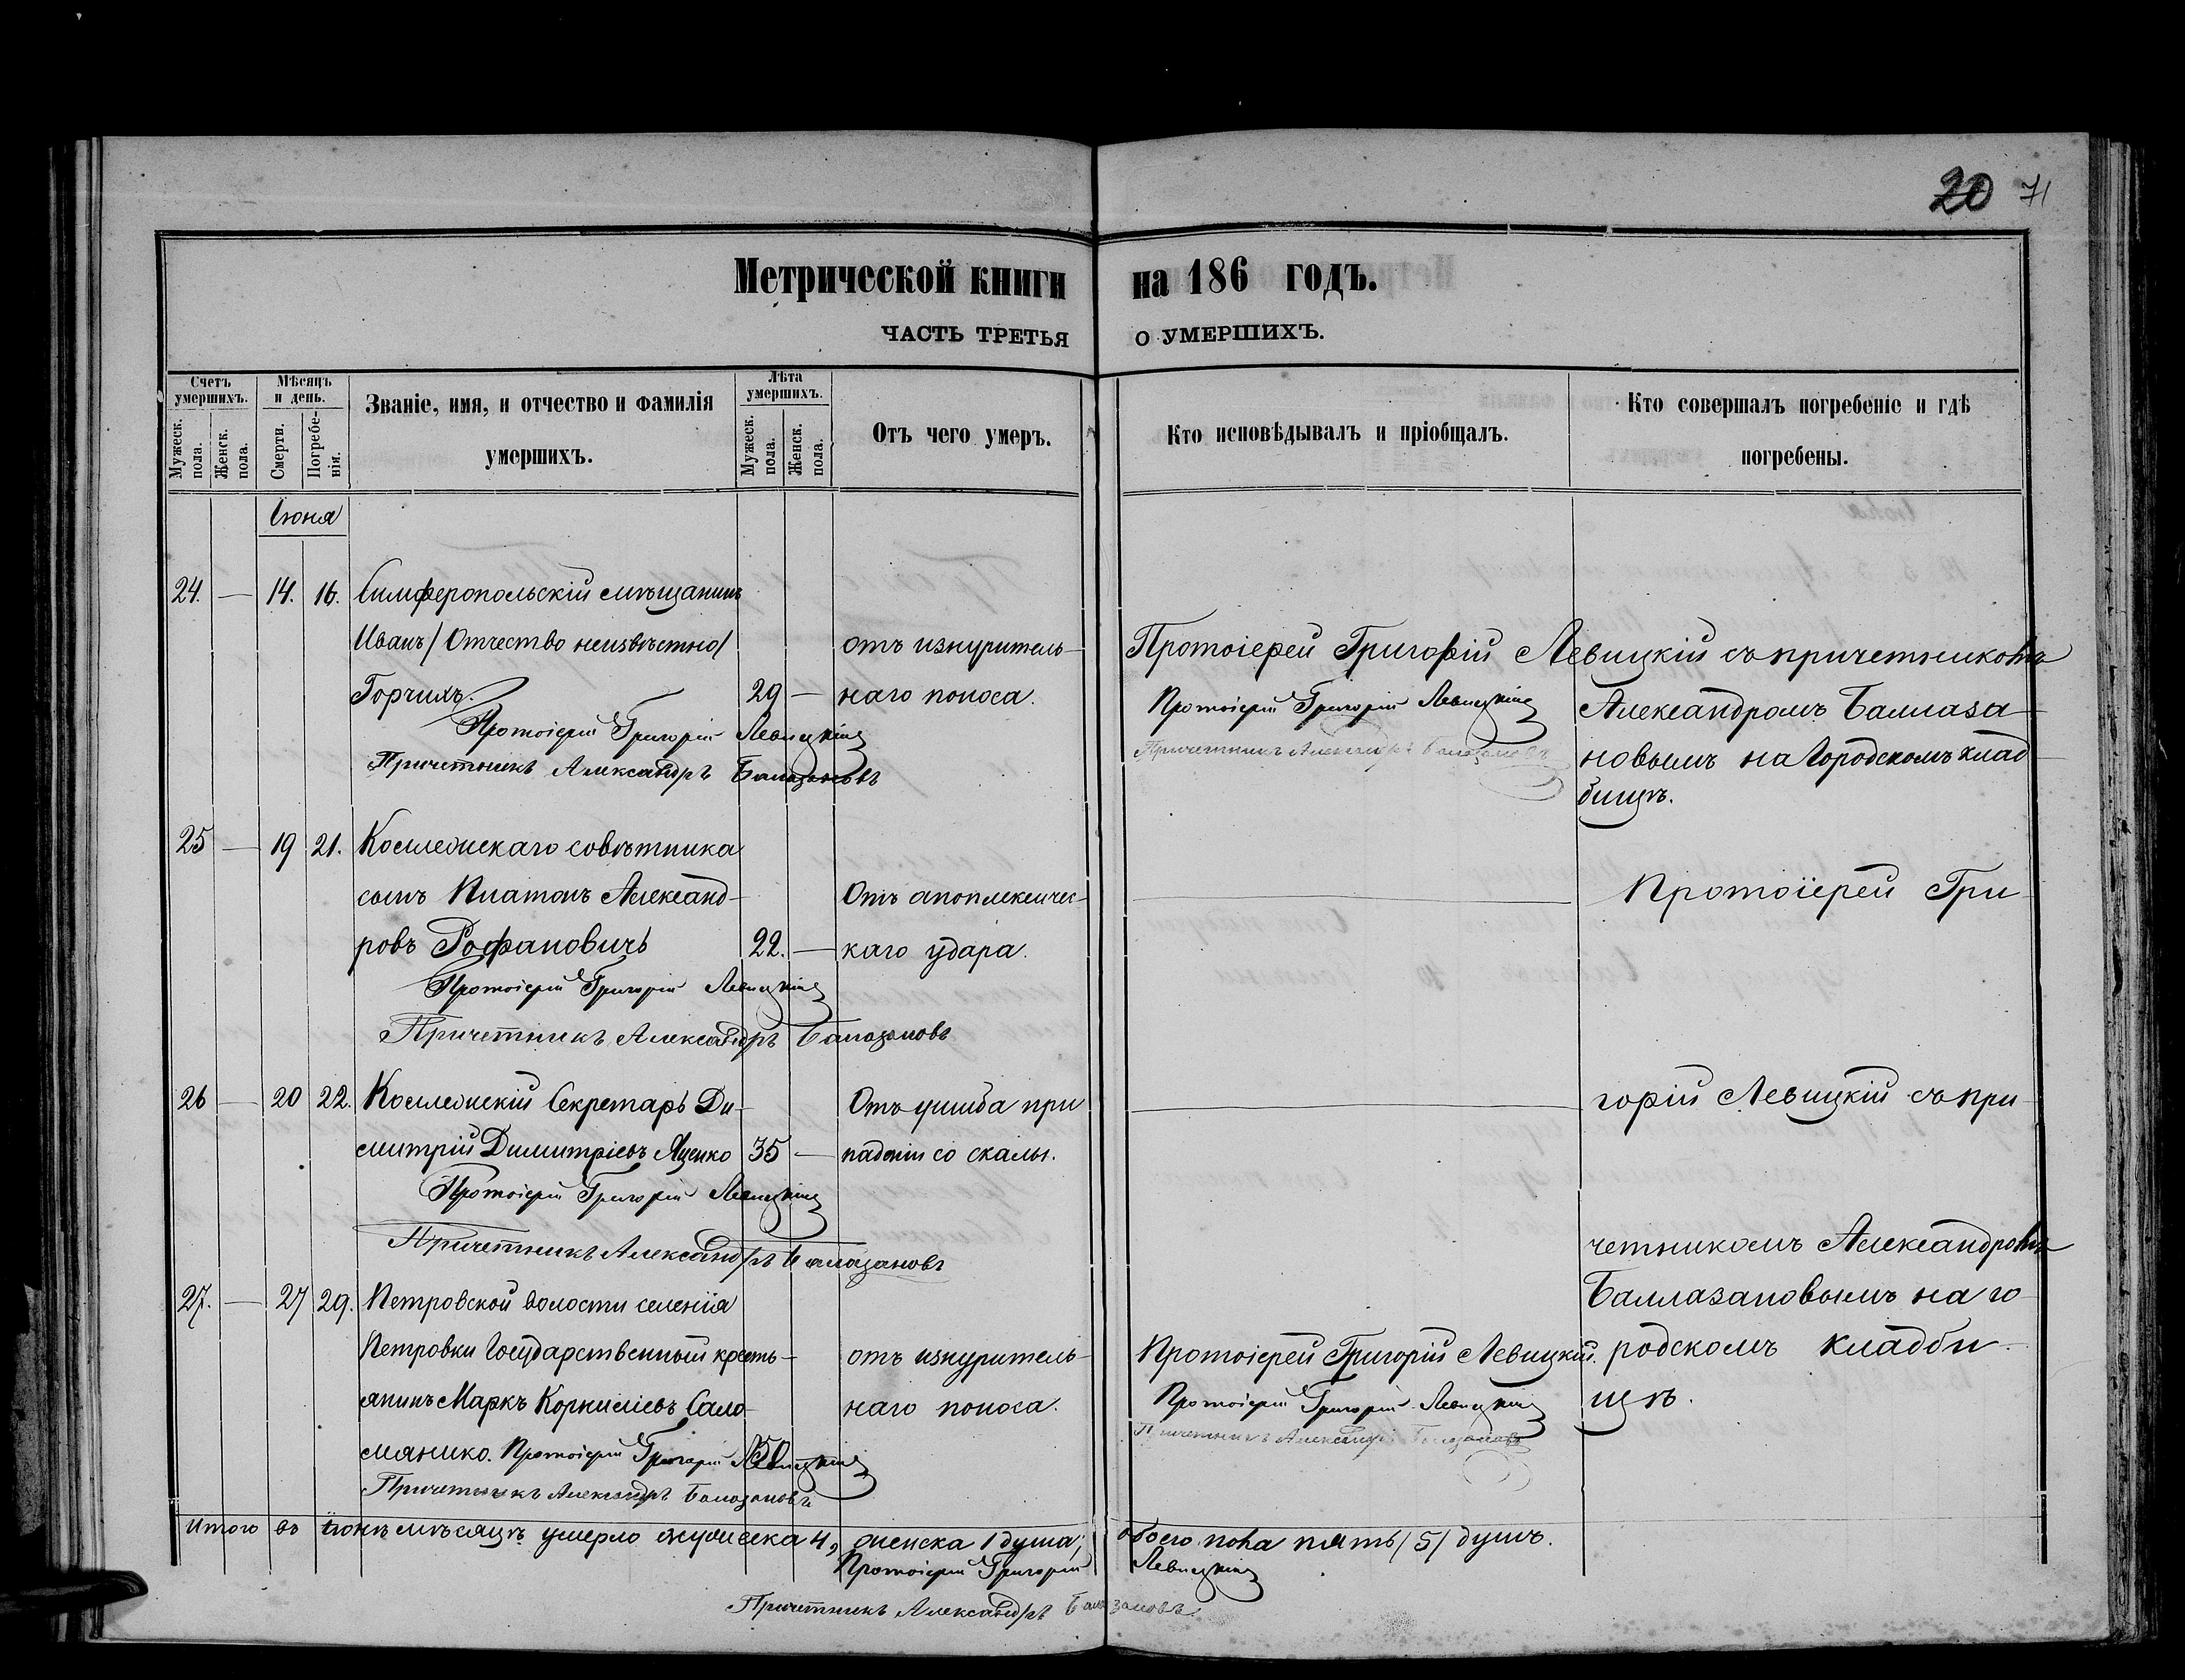 20 71
Метрической книги на 186 годъ.
ЧАСТЬ ТРЕТЬЯ О УМЕРШИХЪ.
Счетъ умершихъ.
Мужеск. пола.
Женск. пола.
Мѣсяцъ и день.
Смерти.
Погребенія.
Званіе, имя, и отчество и фамилія
умершихъ.
Лѣта умершихъ.
Мужеск. пола.
Женск. пола.
Отъ чего умеръ.
Кто исповѣдывалъ и пріобщалъ.
Кто совершалъ погребеніе и гдѣ
погребены.
Іюня
24. — 14. 16. Симферопольскій мѣщанинъ
Иванъ / Отчество неизвѣстно /
Горчихъ. 29 —
отъ изнуритель-
наго поноса.
Протоіерей Григорій Левицкій
Причетникъ Александръ Балазановъ
Протоіерей Григорій Левицкій съ причетникомъ
Протоіерей Григорій Левицкій
Причетникъ Александръ Балазановъ
Александромъ Баллаза-
новымъ на Городскомъ клад-
бищѣ.
25 — 19 21. Коллежскаго совѣтника
сынъ Платонъ Александ-
ровъ Рофановичъ 22. —
Отъ апоплексичес-
каго удара.
Протоіерей Григорій Левицкій
Причетникъ Александръ Балазановъ
Протоіерей Гри-
26 — 20 22. Коллежскій Секретарь Ди-
митрій Димитріевъ Яценко 35 —
Отъ ушиба при
паденіи со скалы.
Протоіерей Григорій Левицкій
Причетникъ Александръ Балазановъ
горій Левицкій съ при-
четникомъ Александромъ
Баллазановымъ на го-
родскомъ кладби-
щѣ.
27. — 27 29. Петровской волости селенія
Петровки Государственный кресть-
янинъ Маркъ Корниліевъ Сало-
мянико. 50
отъ изнуритель-
наго поноса.
Протоіерей Григорій Левицкій
Причетникъ Александръ Балазановъ
Протоіерей Григорій Левицкій.
Протоіерей Григорій Левицкій
Причетникъ Александръ Балазановъ
Итого въ Іюнѣ мѣсяцѣ умерло мужеска 4, женска 1 душа; обоего пола пять / 5 / душъ.
Протоіерей Григорій Левицкій
Причетникъ Александръ Балазановъ